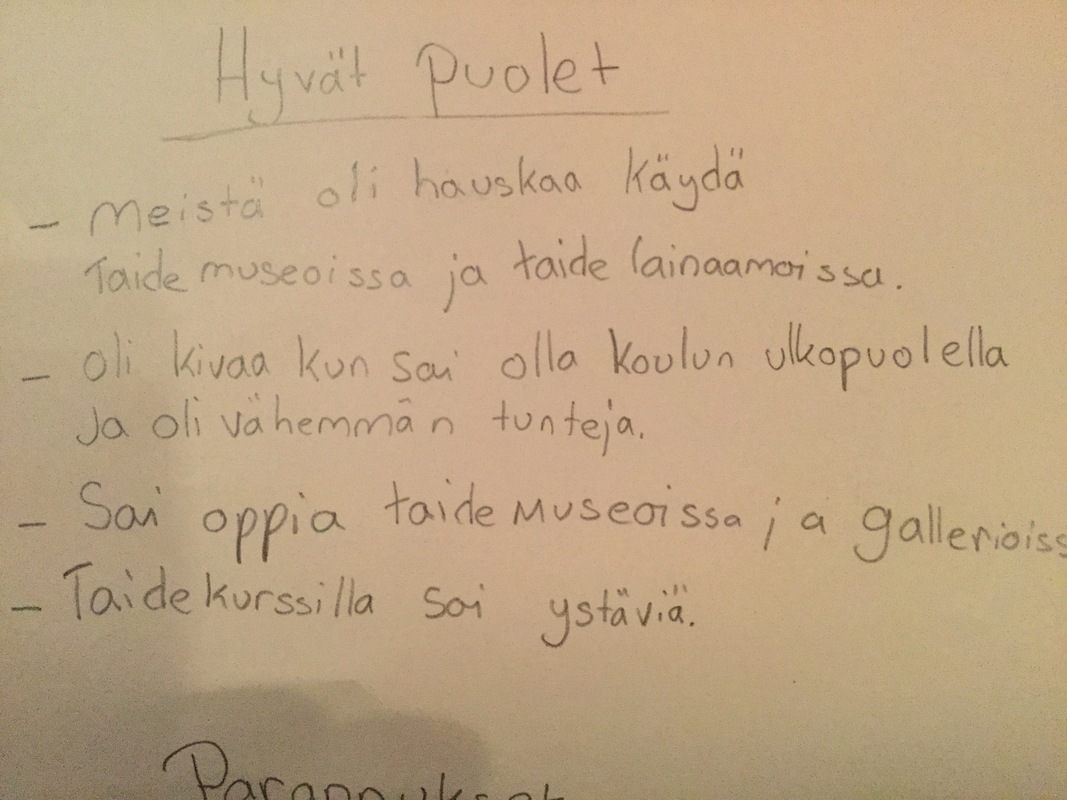 Hyvät puolet
- Meistä oli hauskaa käydä
Taidemuseoissa ja taide lainaamoissa.
- Oli kivaa kun sai olla koulun ulkopuolella
Ja oli vähemmän tunteja.
- Sai oppia taidemuseoissa ja galleriois
- Taidekurssilla sai ystäviä.
Parannukset